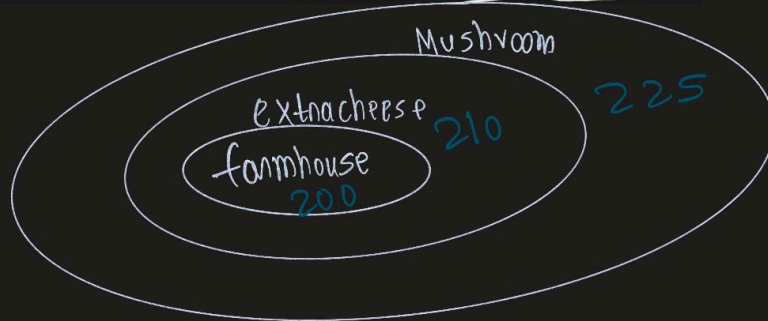 Mushroom
225
extracheese
210
farmhouse
200